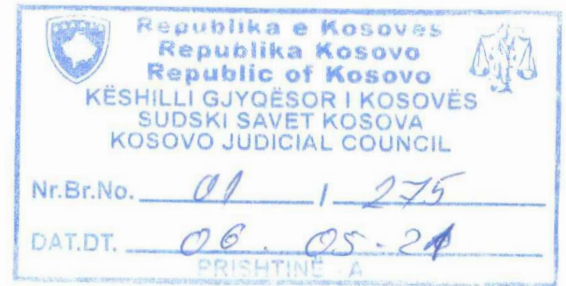 Republika e Kosovës
Republika Kosovo
Republic of Kosovo
KËSHILLI GJYQËSOR I KOSOVËS
SUDSKI SAVET KOSOVA
KOSOVO JUDICIAL COUNCIL
Nr.Br.No. 01 / 275
DAT.DT. 06. 05. 21
PRISHTINË - A